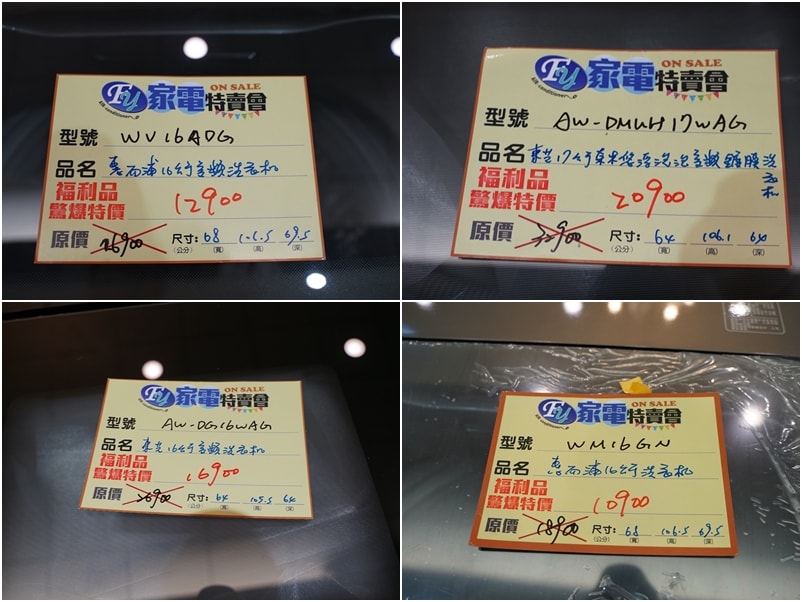 FU 家電特賣會 ON SALE
Air conditioner
型號 WV16ADG
品名 惠而浦16公斤變頻洗衣机
福利品
驚爆特價 12900
原價 26900 尺寸: 68 106.5 69.5
(公分) (寬) (高) (深)
FU 家電特賣會 ON SALE
Air conditioner
型號 AW-DMUH17WAG
品名 東芝17公斤奈米悠浮泡泡變頻鍍膜洗衣机
福利品
驚爆特價 20900
原價 32900 尺寸: 64 106.1 64
(公分) (寬) (高) (深)
FU 家電特賣會 ON SALE
型號 AW-DG16WAG
品名 東芝16公斤變頻洗衣机
福利品
驚爆特價 16900
原價 26900 尺寸: 64 105.5 64
(公分) (寬) (高) (深)
FU 家電特賣會 ON SALE
Air conditioner
型號 WM16GN
品名 惠而浦16公斤洗衣机
福利品
驚爆特價 10900
原價 18900 尺寸: 68 106.5 69.5
(公分) (寬) (高) (深)